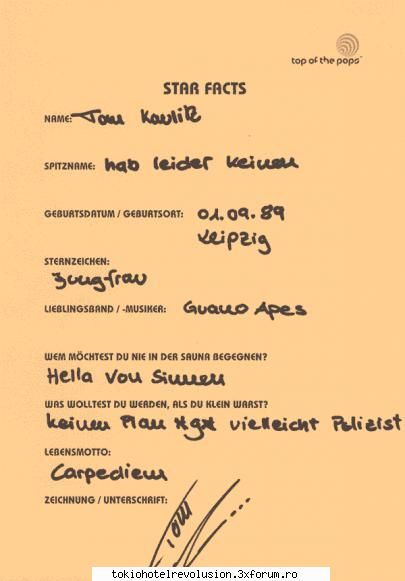 top of the pops
STAR FACTS
NAME: Tom Kaulitz
SPITZNAME: hab leider keinen
GEBURTSDATUM / GEBURTSORT: 01.09.89
Leipzig
STERNZEICHEN:
Jungfrau
LIEBLINGSBAND / -MUSIKER: Guano Apes
WEM MÖCHTEST DU NIE IN DER SAUNA BEGEGNEN?
Hella Von Sinnen
WAS WOLLTEST DU WERDEN, ALS DU KLEIN WARST?
keinen Plan vielleicht Polizist
LEBENSMOTTO:
Carpediem
ZEICHNUNG / UNTERSCHRIFT:
Tom
tokiohotelrevolusion.3xforum.ro